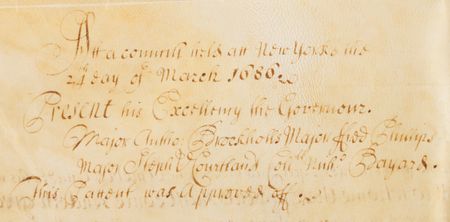 Att a councill held att New Yorke the
24 day of March 1686.
Present his Excellency the Governour.
Major Antho: Brockholls Major ffred Phillips
Major Steph: Courtland Coll: Nich: Bayard.
This Pattent was Approved off.